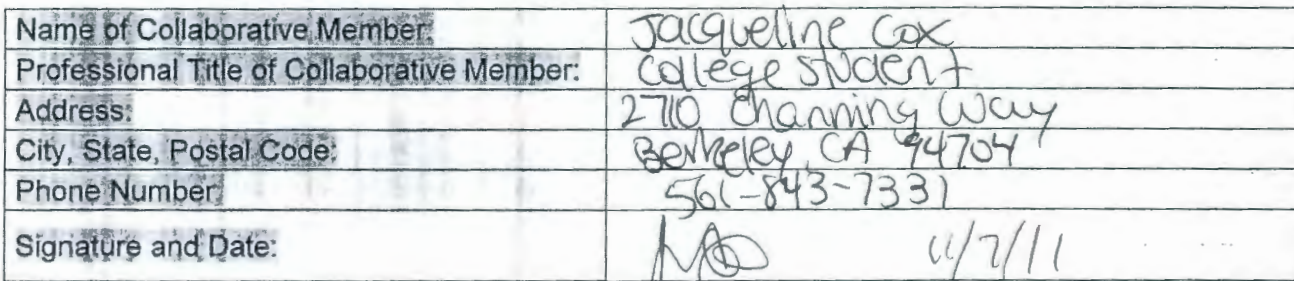 Name of Collaborative Member: Jacqueline Cox
Professional Title of Collaborative Member: College student
Address: 2710 Channing Way
City, State, Postal Code: Berkeley, CA 94704
Phone Number: 561-843-7331
Signature and Date: 11/7/11